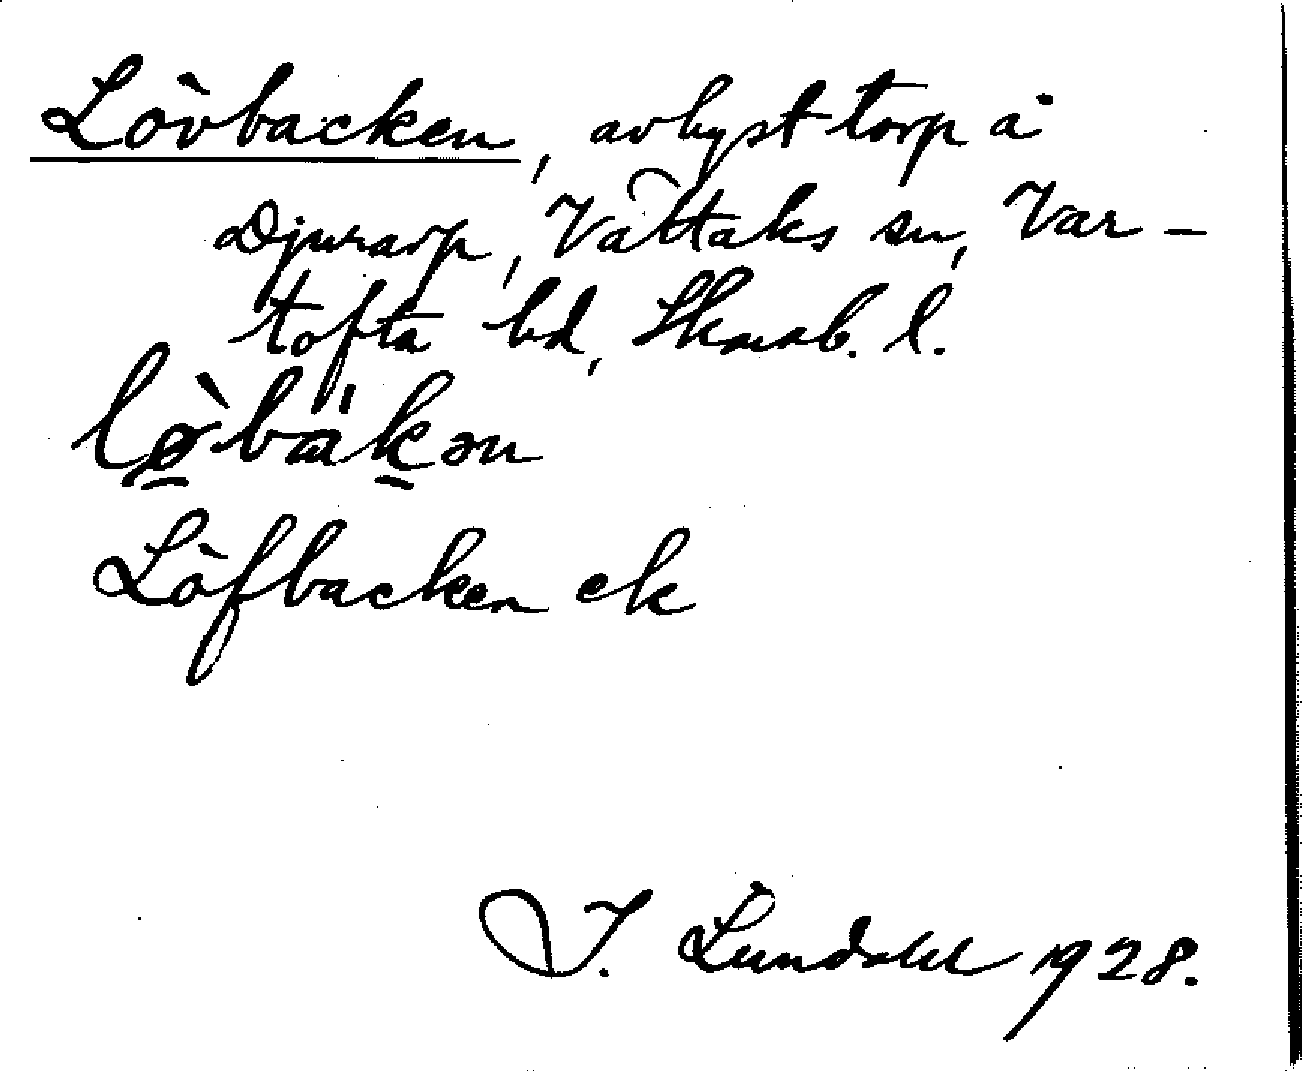 Lövbacken, avhyst torp å
Djurarp, Vättaks sn, Var-
tofta hd, Skarab. l.
lø̀bäkən
Löfbacken ek
I. Lundahl 1928.